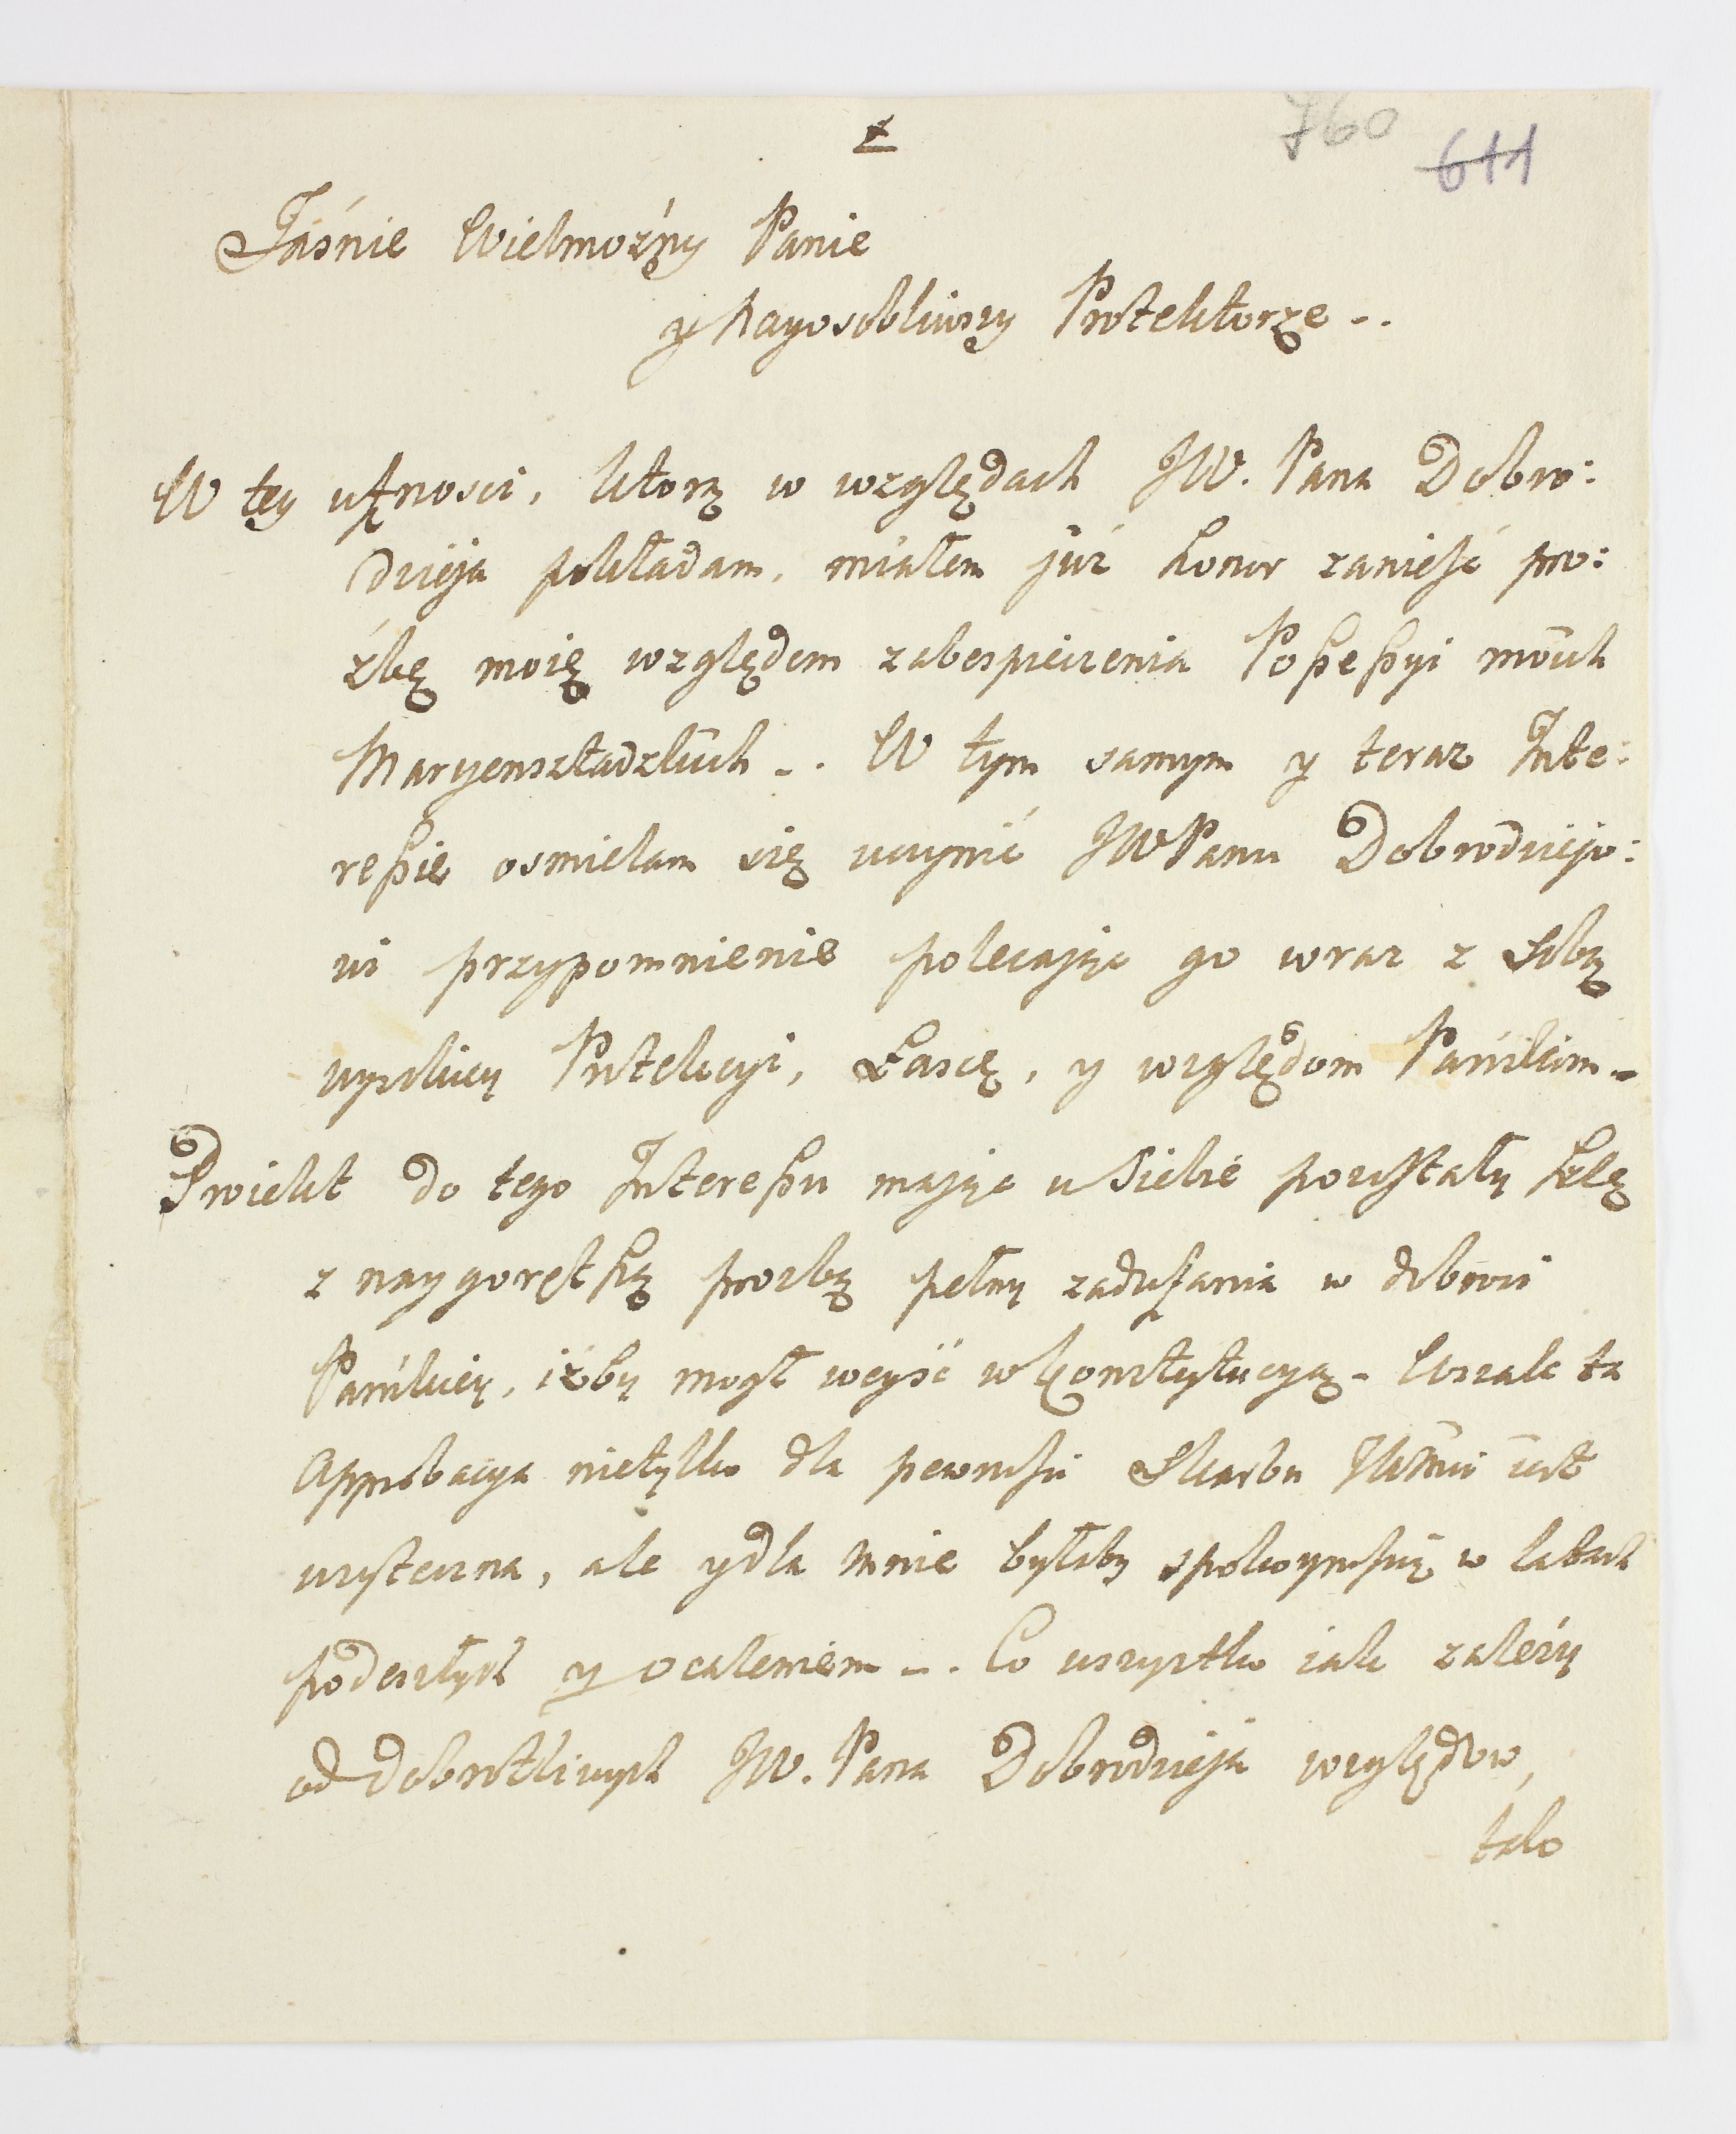 760 611
Jaśnie Wielmożny Panie
y Nayosobliwszy Protektorze -.
W tey ufnosci, ktorą w względach JW. Pana Dobro:
dzieja pokładam, miałem już honor zanieść pro:
źbę moię względem zabespieczenia Possessyi moich
Maryensztadzkich -. W tym samym y teraz Inte:
ressie osmielam się uczynić JWPanu Dobrodziejo:
wi przypomnienie polecając go wraz z Sobą
wysokiey Protekcyi, Łascę, y względom Pańskim -
Proiekt do tego Interessu mając u Siebie pozostały szlę
z naygorętszą prozbą pełny zadufania w dobroci
Pańskiey, iżby mogł weyść w Konstytucyą - Wszak ta
Approbacya nietylko dla pewności Skarbu iest
wysteczna, ale y dla mnie byłaby spokoynością w latach
podeszłych y ocaleniem -. Co wszystko iak zależy
od dobrotliwych JW. Pana Dobrodzieja względow,
tako